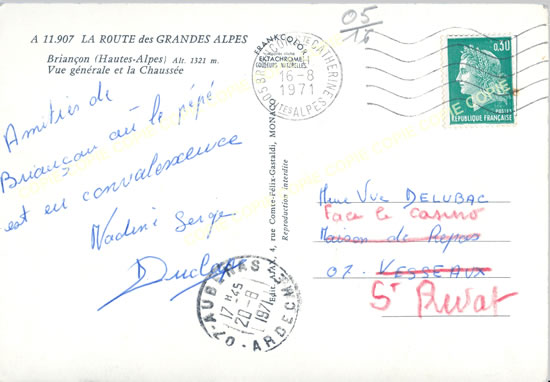 A 11.907 LA ROUTE des GRANDES ALPES
Briançon (Hautes-Alpes) Alt. 1321 m.
Vue générale et la Chaussée
Amitiés de
Briançon où le pépé
est en convalescence
Nadine Serge
FRANKCOLOR
EKTACHROME
COULEURS NATURELLES
4, rue Comte-Félix-Gastaldi, MONACO
Reproduction interdite
05
15
05 BRIANCON STE CATHERINE
16-8
1971
HTES ALPES
0,30
POSTES
REPUBLIQUE FRANÇAISE
COPIE COPIE COPIE COPIE
Mme Vve DELUBAC
Face le casino
Maison de Repos
07. VESSEAUX
St Privat
07-AUBENAS
17 H 45
20-8
1971
ARDECHE